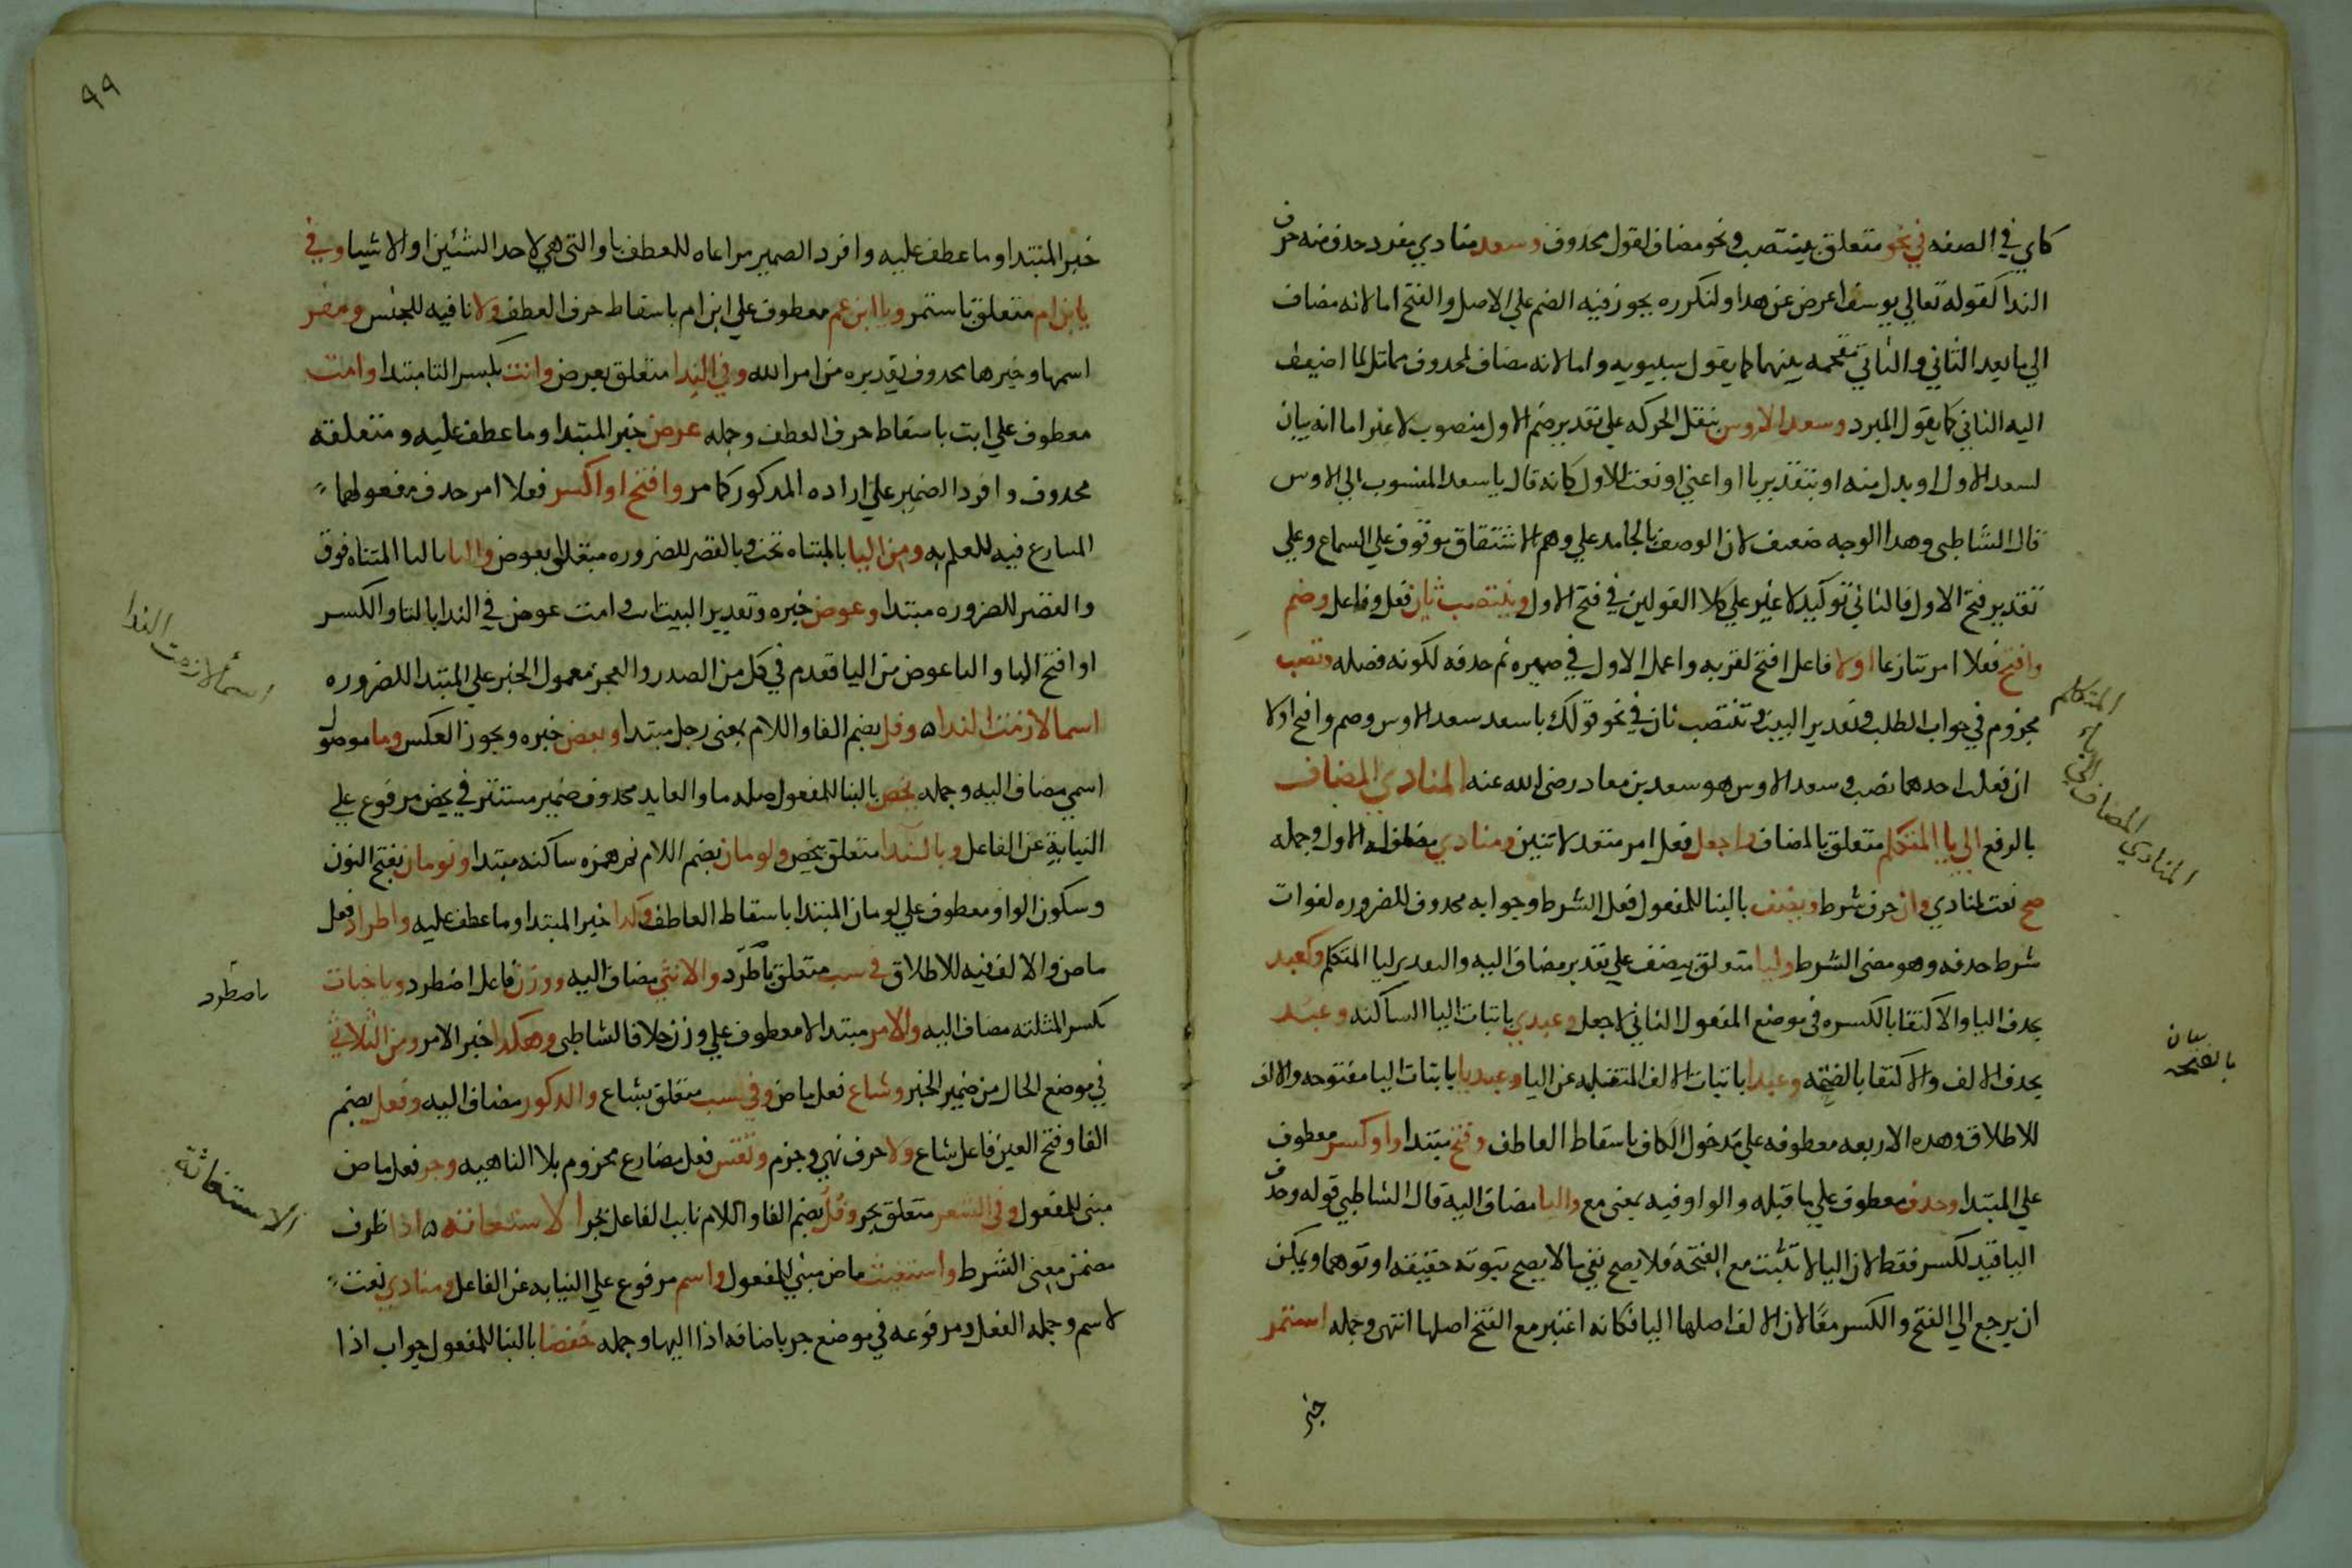 كاي في الصفه في نحو متعلق بينتصب ونحو مضاف لقول محذوف وسعد منادي مفرد حذف منه حرف
الندا كقوله تعالي يوسف اعرض عن هدا ولتكرره يجوز فيه الضم علي الاصل والفتح اما لانه مضاف
الي ما بعد الثاني والثاني مقحمه بينهما كما يقول سيبويه واما لانه مضاف لمحدوف مماثل لما اضيف
اليه الثاني كما يقول المبرد وسعد الاوس بنقل الحركه علي تقدير ضم الاول منصوب لا غير اما انه بيان
لسعد الاول او بدل منه او بتقدير يا او اعني او نعت للاول كانه قال يا سعد المنسوب الي الاوس
قال الشاطبي وهدا الوجه ضعيف لان الوصف بالجامد علي وهم الاشتقاق موقوف علي السماع وعلي
تقدير فتح الاول فالثاني توكيد لا غير علي كلا القولين في فتح الاول وينتصب ثان فعل وفاعل وضم
وافتح فعلا امر تنازعا اولا فاعل افتح لقربه واعمل الاول في ضميره ثم حدفه لكونه فضله وتصب
مجزوم في جواب الطلب وتقدير البيت وينتصب ثان في نحو قولك يا سعد سعد الاوس وضم وافتح اولا
ان فعلت احدهما تصب وسعد الاوس هو سعد بن معاد رضي الله عنه المنادي المضاف
بالرفع الي يا المتكلم متعلق بالمضاف واجعل فعل امر متعد لاثنين ومنادي مفعوله الاول وجمله
صح نعت لمنادي وان حرف شرط ويضف بالبنا للمفعول فعل الشرط وجوابه محدوف للضروره لفوات
شرط حدفه وهو مضي الشرط وليا متعلق بيضف علي تقدير مضاف اليه والتقدير ليا المتكلم وكعبد
بحدف اليا والاكتفا بالكسره في موضع المفعول الثاني لاجعل وعبدي باثبات اليا الساكنه وعبد
بحدف الالف والاكتفا بالفتحه وعبدا باثبات الالف المنقلبه عن اليا وعبديا باثبات اليا مفتوحه والالف
للاطلاق وهده الاربعه معطوفه علي مدخول الكاف باسقاط العاطف وفتح مبتدا واو كسر معطوف
علي المبتدا وحدف معطوف علي ما قبله والواو فيه بمعني مع واليا مضاف اليه قال الشاطبي قوله وحدف
اليا قيد لكسر فقط لان اليا لا تثبت مع الفتحة فلا يصح نفي ما لا يصح ثبوته حقيقه او توهما ويمكن
ان يرجع الي الفتح والكسر معًا لان الالف اصلها اليا فكانه اعتبر مع الفتح اصلها انتهي وجمله استمر
خبر
المنادي المضاف الي ياء المتكلم
بيان
بالفتحه
٩٩
خبر المبتدا وما عطف عليه وافرد الضمير مراعاه للعطف باو التي هي لاحد الشئين او الاشيا وفي
يا بن ام متعلق باستمر ويا ابن عم معطوف علي ابن ام باسقاط حرف العطف ولا نافيه للجنس ومفر
اسمها وخبرها محدوف تقديره من امر الله وفي الندا متعلق بعرض وابت بكسر التا مبتدا وامت
معطوف علي ابت باسقاط حرف العطف وجمله عرض خبر المبتدا وما عطف عليه ومتعلقه
محدوف وافرد الضمير علي اراده المدكور كما مر وافتح او اكسر فعلا امر حدف مفعولهما
المتنازع فيه للعلم به ومن اليا بالمثناه تحت وبالقصر للضروره متعلق بعوض والتا بالتا المثناه فوق
والقصر للضروره مبتدا وعوض خبره وتقدير البيت ابت وامت عوض في الندا بالتا والكسر
او افتح التا والتا عوض من اليا فقدم في كل من الصدر والعجز معمول الخبر علي المبتدا للضروره
اسما لازمت الندا ه وفل بضم الفا واللام بمعني رجل مبتدا وبعض خبره ويجوز العكس وما موصول
اسمي مضاف اليه وجمله يخص بالبنا للمفعول صله ما والعايد محدوف ضمير مستتر في يخص مرفوع علي
النيابة عن الفاعل وبالندا متعلق بيخص ولومان بضم اللام ثم همزه ساكنه مبتدا ونومان بفتح النون
وسكون الواو معطوف علي لومان المبتدا باسقاط العاطف وكدا خبر المبتدا وما عطف عليه واطرادا فعل
ماض والالف فيه للاطلاق في سب متعلق باطرد والانثي مضاف اليه ووزن فاعل اضطرد ويا خباث
بكسر المثلثه مضاف اليه والامر مبتدا لا معطوف علي وزن خلافا لشاطبي وهكدا خبر الامر ومن الثلاثي
في موضع الحال من ضمير الخبر وشاع فعل ماض وفي سب متعلق بشاع والدكور مضاف اليه وفعل بضم
الفا وفتح العين فاعل شاع ولا حرف نهي وجزم وتقس فعل مضارع مجزوم بلا الناهيه وجر فعل ماض
مبني للمفعول وفي الشعر متعلق بجر وفل بضم الفا واللام نايب الفاعل بجر الاستغاثه ه اذا ظرف
مضمن معني الشرط واستغيث ماض مبني للمفعول واسم مرفوع علي النيابه عن الفاعل ومنادي نعت
لاسم وجمله الفعل ومرفوعه في موضع جر باضافه اذا اليها وجمله خفضا بالبنا للمفعول جواب اذا
اسماء لازمت الندا
باضطرد
الاستغاثة